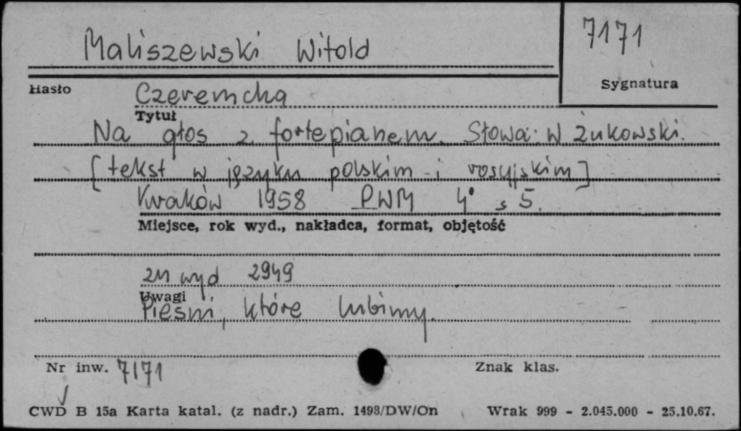 Maliszewski Witold
7171
Hasło
Sygnatura
Czeremcha
Tytuł
Na głos z fortepianem. Słowa: W Żukowski.
[tekst w języku polskim i rosyjskim]
Kraków 1958 PWM 4° s 5.
Miejsce, rok wyd., nakładca, format, objętość
zn wyd 2949
Uwagi
Pieśni, które lubimy.
Nr inw. 7171
Znak klas.
CWD B 15a Karta katal. (z nadr.) Zam. 1498/DW/On
Wrak 999 - 2.045.000 - 25.10.67.